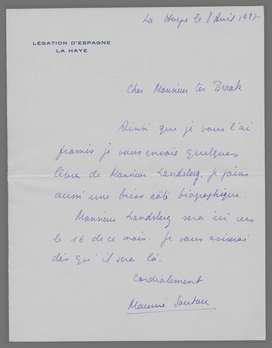 La Haye le 8 Avril 193
LÉGATION D'ESPAGNE
LA HAYE
Cher Monsieur ter Braak
Ainsi que je vous l'ai
promis je vous envoie quelques
livres de Monsieur Landsberg. je joins
aussi une biographique.
Monsieur Landsberg sera ici vers
le 16 de ce mois. je vous aviserai
dès qu'il sera là.
Cordialement